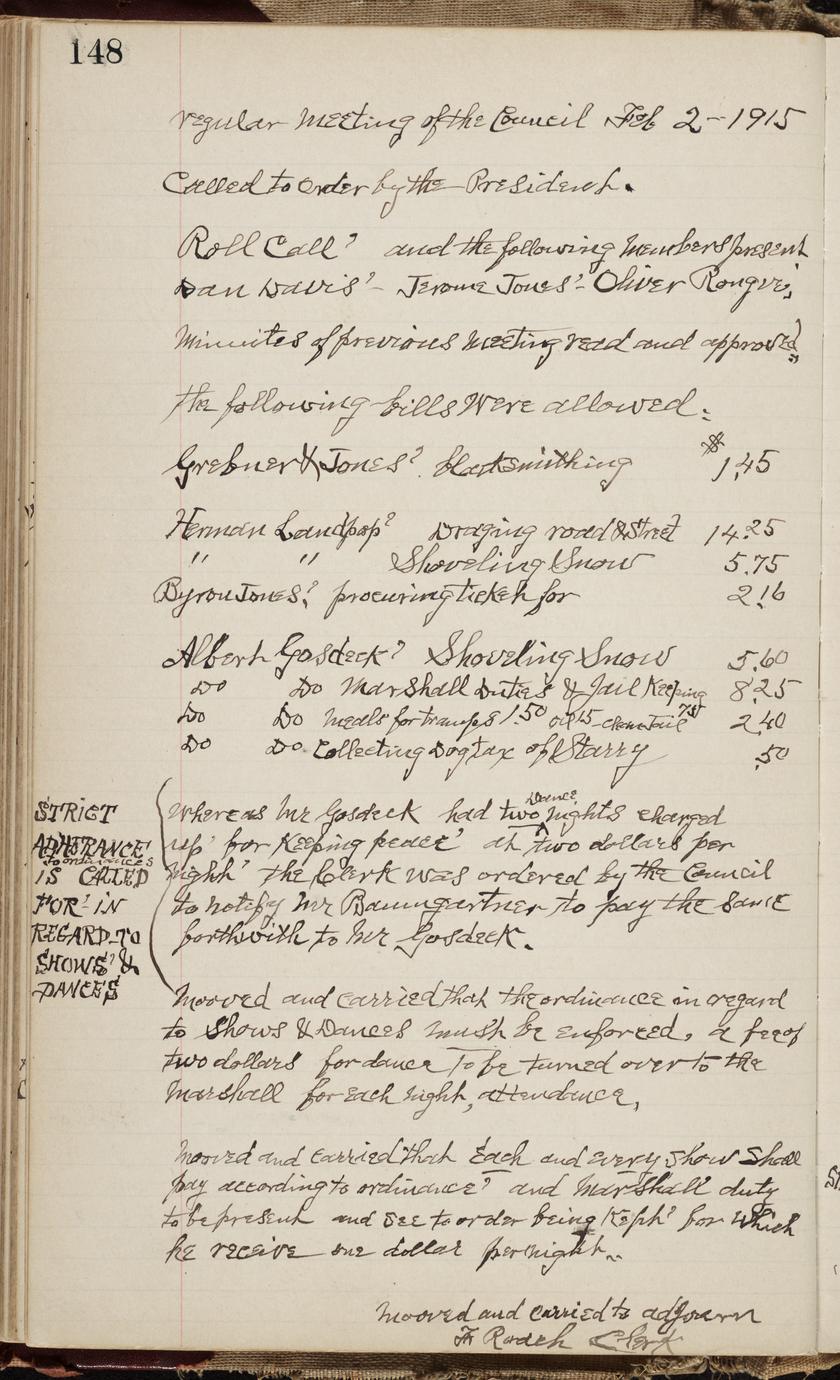 148
regular Meeting of the Council Feb 2-1915
Called to order by the President.
Roll Call? and the following Members present
Dan Davis? - Jerome Jones? - Oliver Rongve,
Minuites of previous Meeting read and approved.
the following bills Were allowed:
Grebner & Jones? blacksmithing $ 1,45
Herman Landpap? Draging road & Street 14.25
" " Shoveling Snow 5.75
Byron Jones? procuring tickeh for 2.16
Albert Gosdeck? Shoveling Snow 5.60
Do Do Marshall Duties & Jail Keeping 8.25
Do Do Meals for tramps 1.50 oil 15 - clean Jail 75 2.40
Do Do Collecting Dog tax of Starry .50
STRICT
ADHERANCE
to ordinances
IS CALLED
FOR IN
REGARD TO
SHOWS &
DANCES
Whereas Mr Gosdeck had two Dance Nights charged
up for Keeping peace' at two dollars per
Night' the Clerk was ordered by the Council
to notefy Mr Baumgartner to pay the same
forthwith to Mr Gosdeck.
Mooved and carried that the ordinance in regard
to Shows & Dances must be enforced, a fee of
two dollars for dance To be turned over to the
Marshall for each Night, attendance,
Mooved and carried that Each and every Show Shall
pay according to ordinance? and Marshall duty
to be present and see to order being Keph? for Which
he receive one dollar per night..
Mooved and carried to adjourn
Clerk